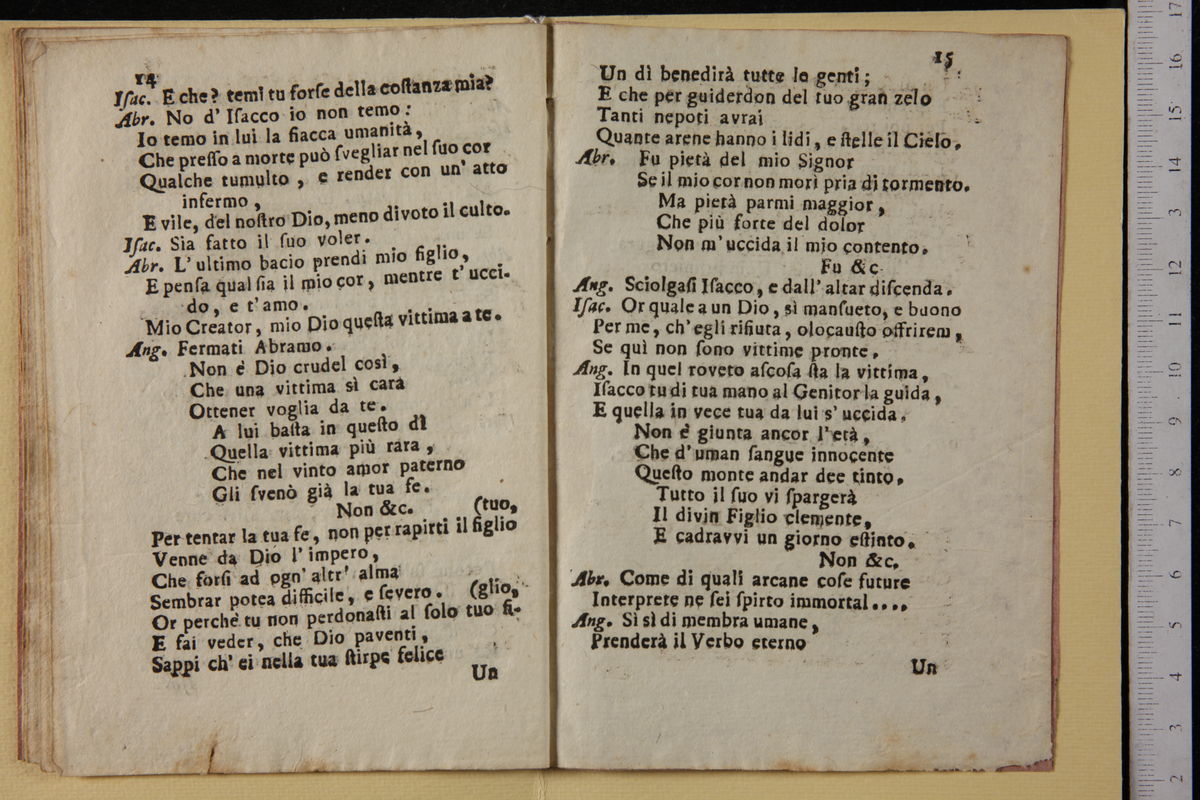 14
Iſac. E che? temi tu forſe della coſtanza mia?
Abr. No d' Iſacco io non temo:
Io temo in lui la fiacca umanità,
Che preſſo a morte può ſvegliar nel ſuo cor
Qualche tumulto, e render con un' atto
infermo,
E vile, del noſtro Dio, meno divoto il culto.
Iſac. Sia fatto il ſuo voler.
Abr. L' ultimo bacio prendi mio figlio,
E penſa qual ſia il mio cor, mentre t' ucci-
do, e t' amo.
Mio Creator, mio Dio queſta vittima a te.
Ang. Fermati Abramo.
Non è Dio crudel così,
Che una vittima sì cara
Ottener voglia da te.
A lui baſta in queſto dì
Quella vittima più rara,
Che nel vinto amor paterno
Gli ſvenò già la tua fe.
Non &c. (tuo,
Per tentar la tua fe, non per rapirti il figlio
Venne da Dio l' impero,
Che forſi ad ogn' altr' alma
Sembrar potea difficile, e ſevero. (glio,
Or perchè tu non perdonaſti al ſolo tuo fi-
E fai veder, che Dio paventi,
Sappi ch' ei nella tua ſtirpe felice
Un
15
Un dì benedirà tutte le genti;
E che per guiderdon del tuo gran zelo
Tanti nepoti avrai
Quante arene hanno i lidi, e ſtelle il Cielo.
Abr. Fu pietà del mio Signor
Se il mio cor non morì pria di tormento.
Ma pietà parmi maggior,
Che più forte del dolor
Non m' uccida il mio contento.
Fu &c.
Ang. Sciolgaſi Iſacco, e dall' altar diſcenda.
Iſac. Or quale a un Dio, sì manſueto, e buono
Per me, ch' egli rifiuta, olocauſto offrirem,
Se quì non ſono vittime pronte.
Ang. In quel roveto aſcoſa ſta la vittima,
Iſacco tu di tua mano al Genitor la guida,
E quella in vece tua da lui s' uccida.
Non è giunta ancor l' età,
Che d' uman ſangue innocente
Queſto monte andar dee tinto.
Tutto il ſuo vi ſpargerà
Il divin Figlio clemente,
E cadravvi un giorno eſtinto.
Non &c.
Abr. Come di quali arcane coſe future
Interprete ne ſei ſpirto immortal....
Ang. Sì sì di membra umane,
Prenderà il Verbo eterno
Un
2
3
4
5
6
7
8
9
10
11
12
13
14
15
16
17